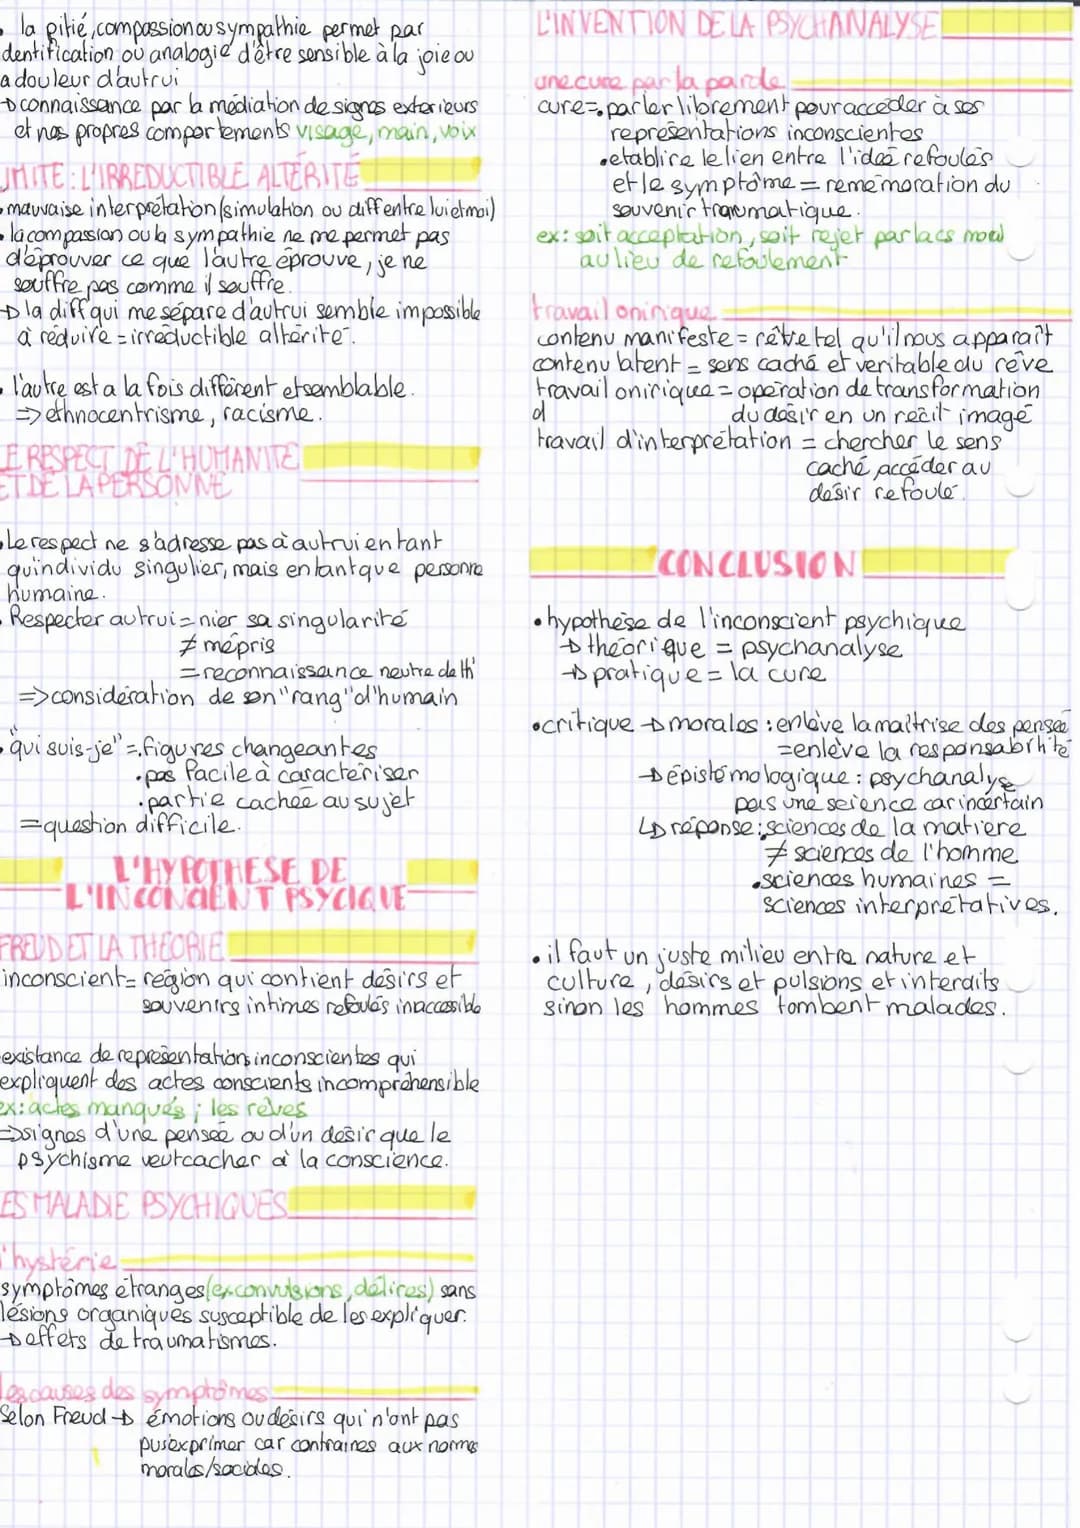 • la pitié, compassion ou sympathie permet par
dentification ou analogie d'être sensible à la joie ou
a douleur d'autrui
→ connaissance par la médiation de signes exterieurs
et nos propres comportements visage, main, voix
IMITE : L'IRREDUCTIBLE ALTÉRITÉ
• mauvaise interprétation (simulation ou diff entre lui et moi)
• la compassion ou la sympathie ne me permet pas
d'éprouver ce que l'autre éprouve, je ne
souffre pas comme il souffre.
→ la diff qui me sépare d'autrui semble impossible
à réduire = irréductible altérité.
• l'autre est a la fois différent et semblable.
=> ethnocentrisme, racisme.
E RESPECT DE L'HUMANITÉ
ET DE LA PERSONNE
• Le respect ne s'adresse pas à autrui en tant
qu'individu singulier, mais en tant que personne
humaine.
• Respecter autrui = nier sa singularité
≠ mépris
= reconnaissance neutre de l'h
=> considération de son "rang" d'humain
• "qui suis-je" = • figures changeantes
• pas facile à caractériser
• partie cachée au sujet
= question difficile.
L'HYPOTHESE DE
L'INCONCIENT PSYCIQUE
FREUD ET LA THÉORIE
inconscient = région qui contient désirs et
souvenirs intimes refoulés inaccessible
existance de représentations inconscientes qui
expliquent des actes conscients incompréhensible
ex: actes manqués ; les rêves
=> signes d'une pensée ou d'un desir que le
psychisme veut cacher à la conscience.
ES MALADIE PSYCHIQUES
l'hystérie
symptômes étranges (ex convulsions, délires) sans
lésions organiques susceptible de les expliquer.
→ effets de traumatismes.
les causes des symptômes
Selon Freud → émotions ou désirs qui n'ont pas
pu s'exprimer car contraires aux norme
morales/sociales.
L'INVENTION DE LA PSYCHANALYSE
une cure par la parole
cure = • parler librement pour accéder à ses
représentations inconscientes
• etablire le lien entre l'idée refoulés
et le symptôme = remémoration du
souvenir traumatique.
ex: soit acceptation, soit rejet par la cs moral
au lieu de refoulement
travail onirique
contenu manifeste = rêve tel qu'il nous apparaît
contenu latent = sens caché et veritable du rêve
travail onirique = opération de transformation
d
du désir en un récit imagé
travail d'interprétation = chercher le sens
caché, accéder au
désir refoulé.
CONCLUSION
• hypothèse de l'inconscient psychique
→ théorique = psychanalyse
→ pratique = la cure
• critique → morales : enlève la maîtrise des pensée
= enlève la responsabilité
→ épistémologique : psychanalyse
pas une science car incertain
↳ réponse : sciences de la matiere
≠ sciences de l'homme
• sciences humaines =
sciences interprétatives.
• il faut un juste milieu entre nature et
culture, désirs et pulsions et interdits
sinon les hommes tombent malades.